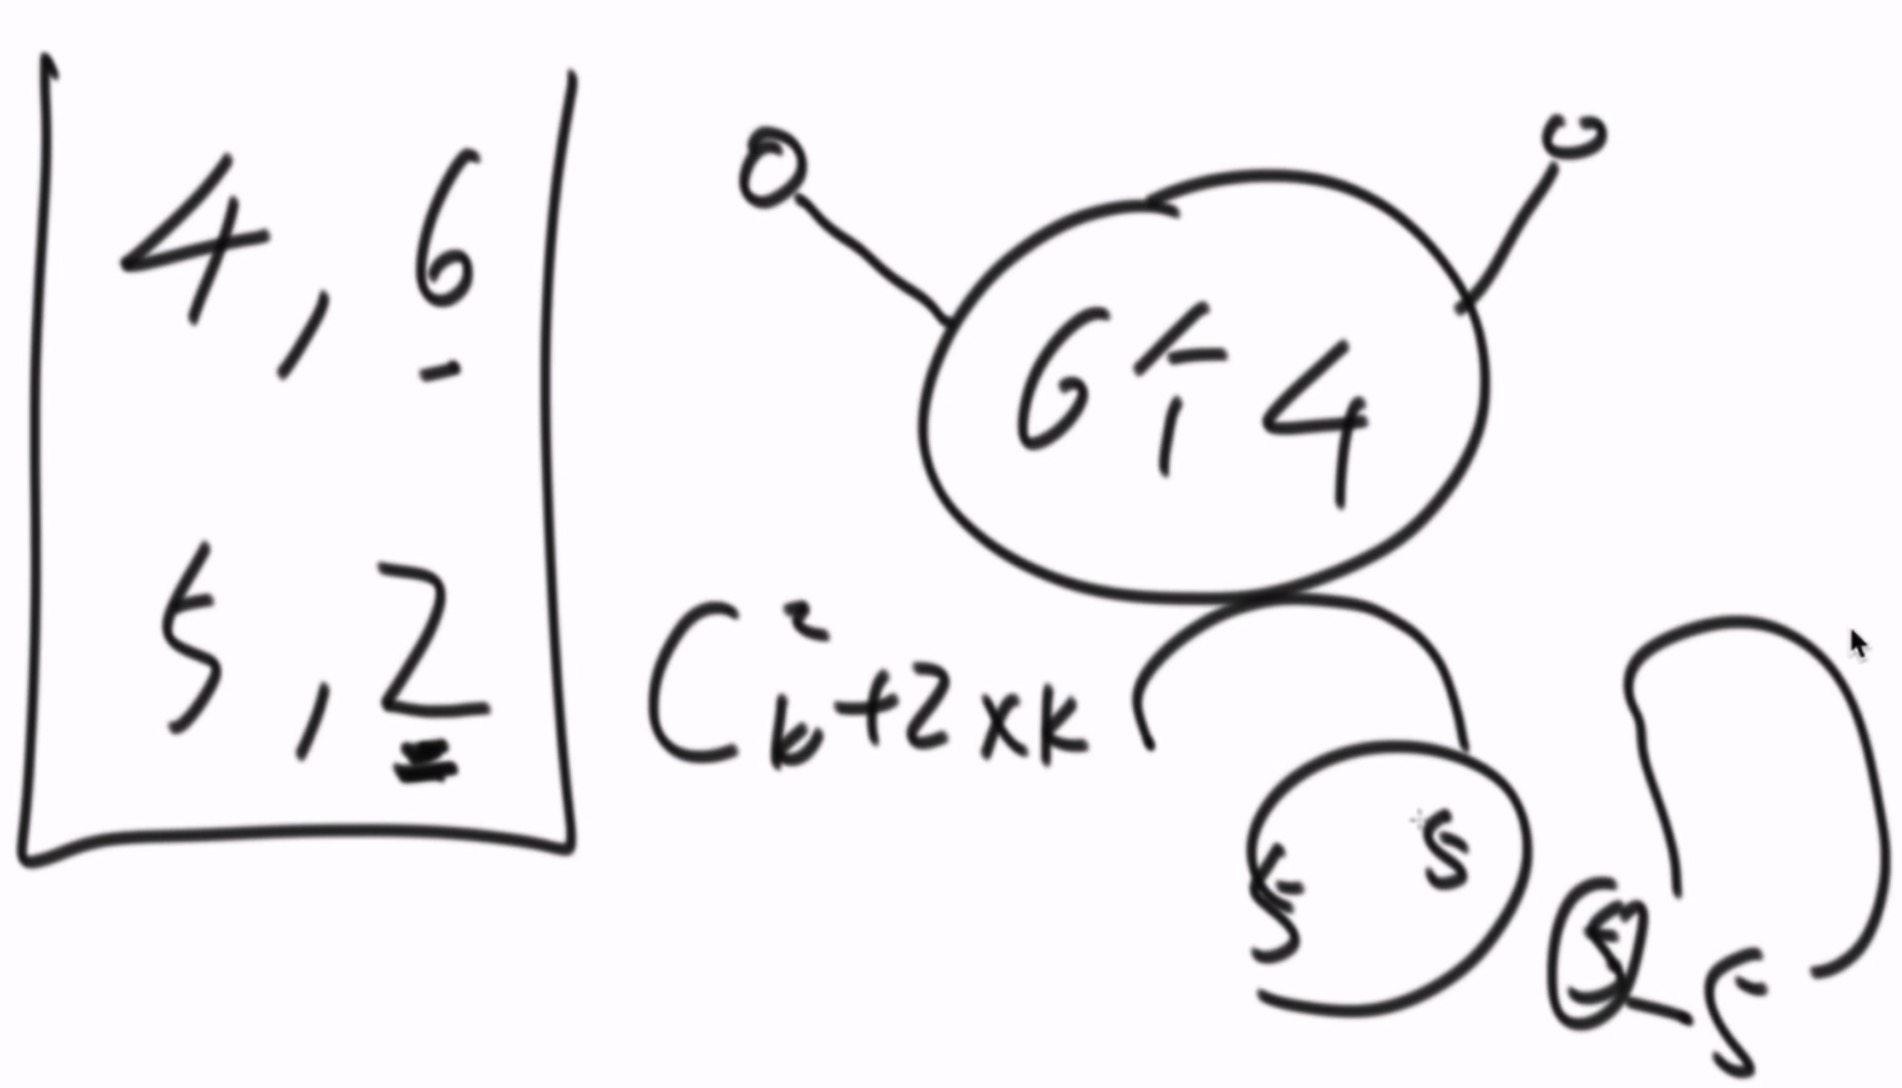 4, 6
5, 2
0
6个4
C_k^2+2×k
5 5
5 5